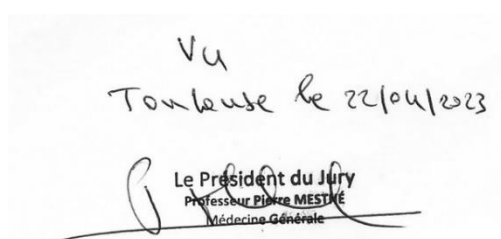 Vu
Toulouse le 22/04/2023
Le Président du Jury
Professeur Pierre MESTHÉ
Médecine Générale